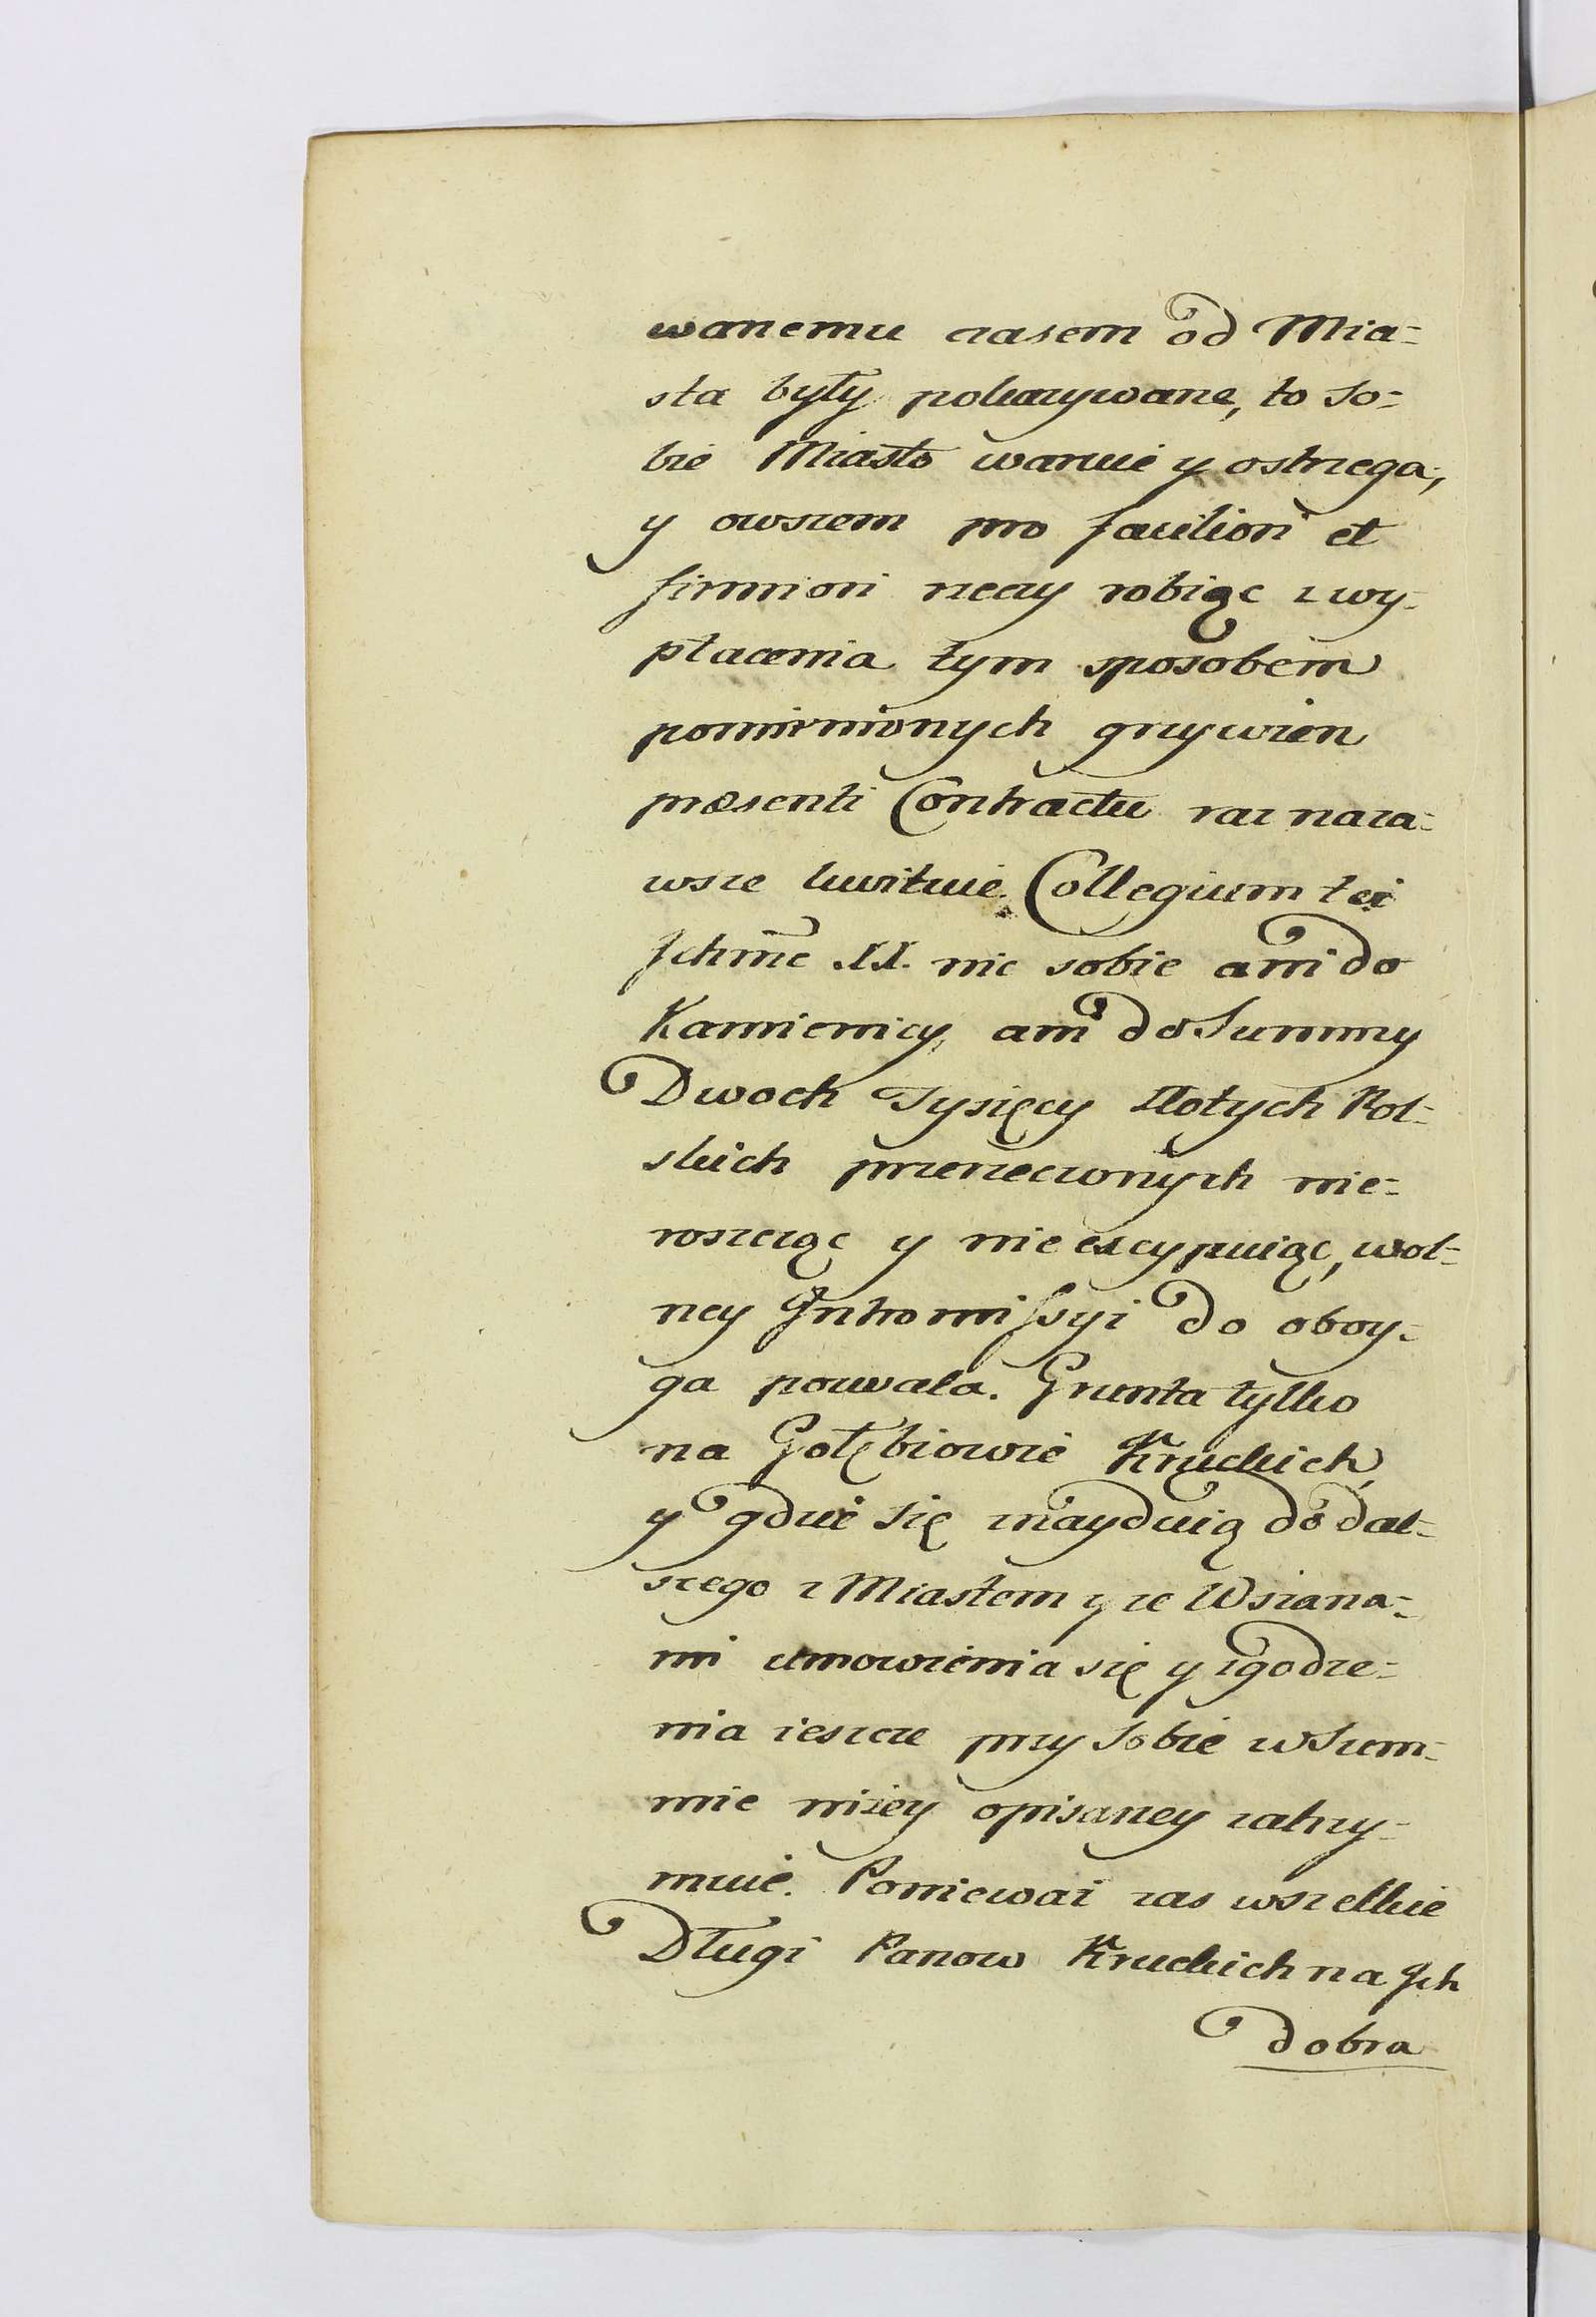 wanemu czasem od Mia-
sta były pokazywane, to so-
bie Miasto waruie y ostrzega,
y owszem pro faciliori et
firmiori rzeczy robiąc z wy-
płacenia tym sposobem
pomienionych grzywien
præsenti Contractu raz naza-
wsze kwituie. Collegium też
Jchmc XX. nic sobie ani do
Kamienicy, ani do Summy
Dwoch Tysięcy Złotych Pol-
skich przerzeczonych nie-
roszcząc y nie excypuiąc, wol-
ney Jntromissyi do oboy-
ga pozwala. Grunta tylko
na Gołębiowie Kruckich,
y gdzie się znayduią do dal-
szego z Miastem y ze Wszana-
mi umowienia się y zgodze-
nia ieszcze przy sobie w Sum-
mie niżey opisaney zatrzy-
muie. Poniewaz zas wszelkie
Długi Panow Kruckich na Jch
dobra